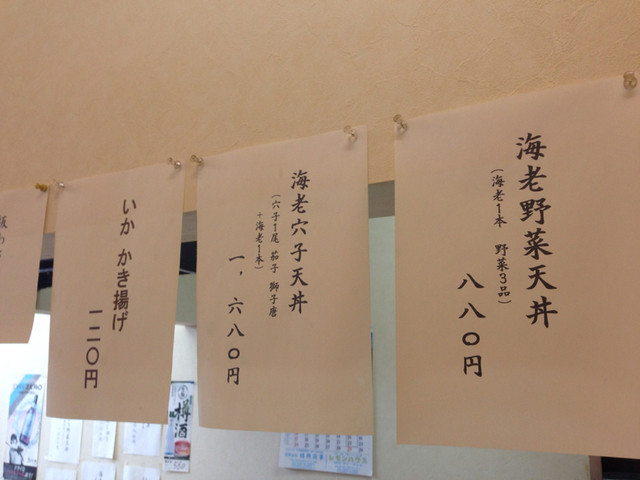 海老野菜天丼
(海老1本 野菜3品)
八八〇円
海老穴子天丼
(穴子1尾 茄子 獅子唐
+海老1本)
一、六八〇円
いか かき揚げ
一二〇円
樽酒